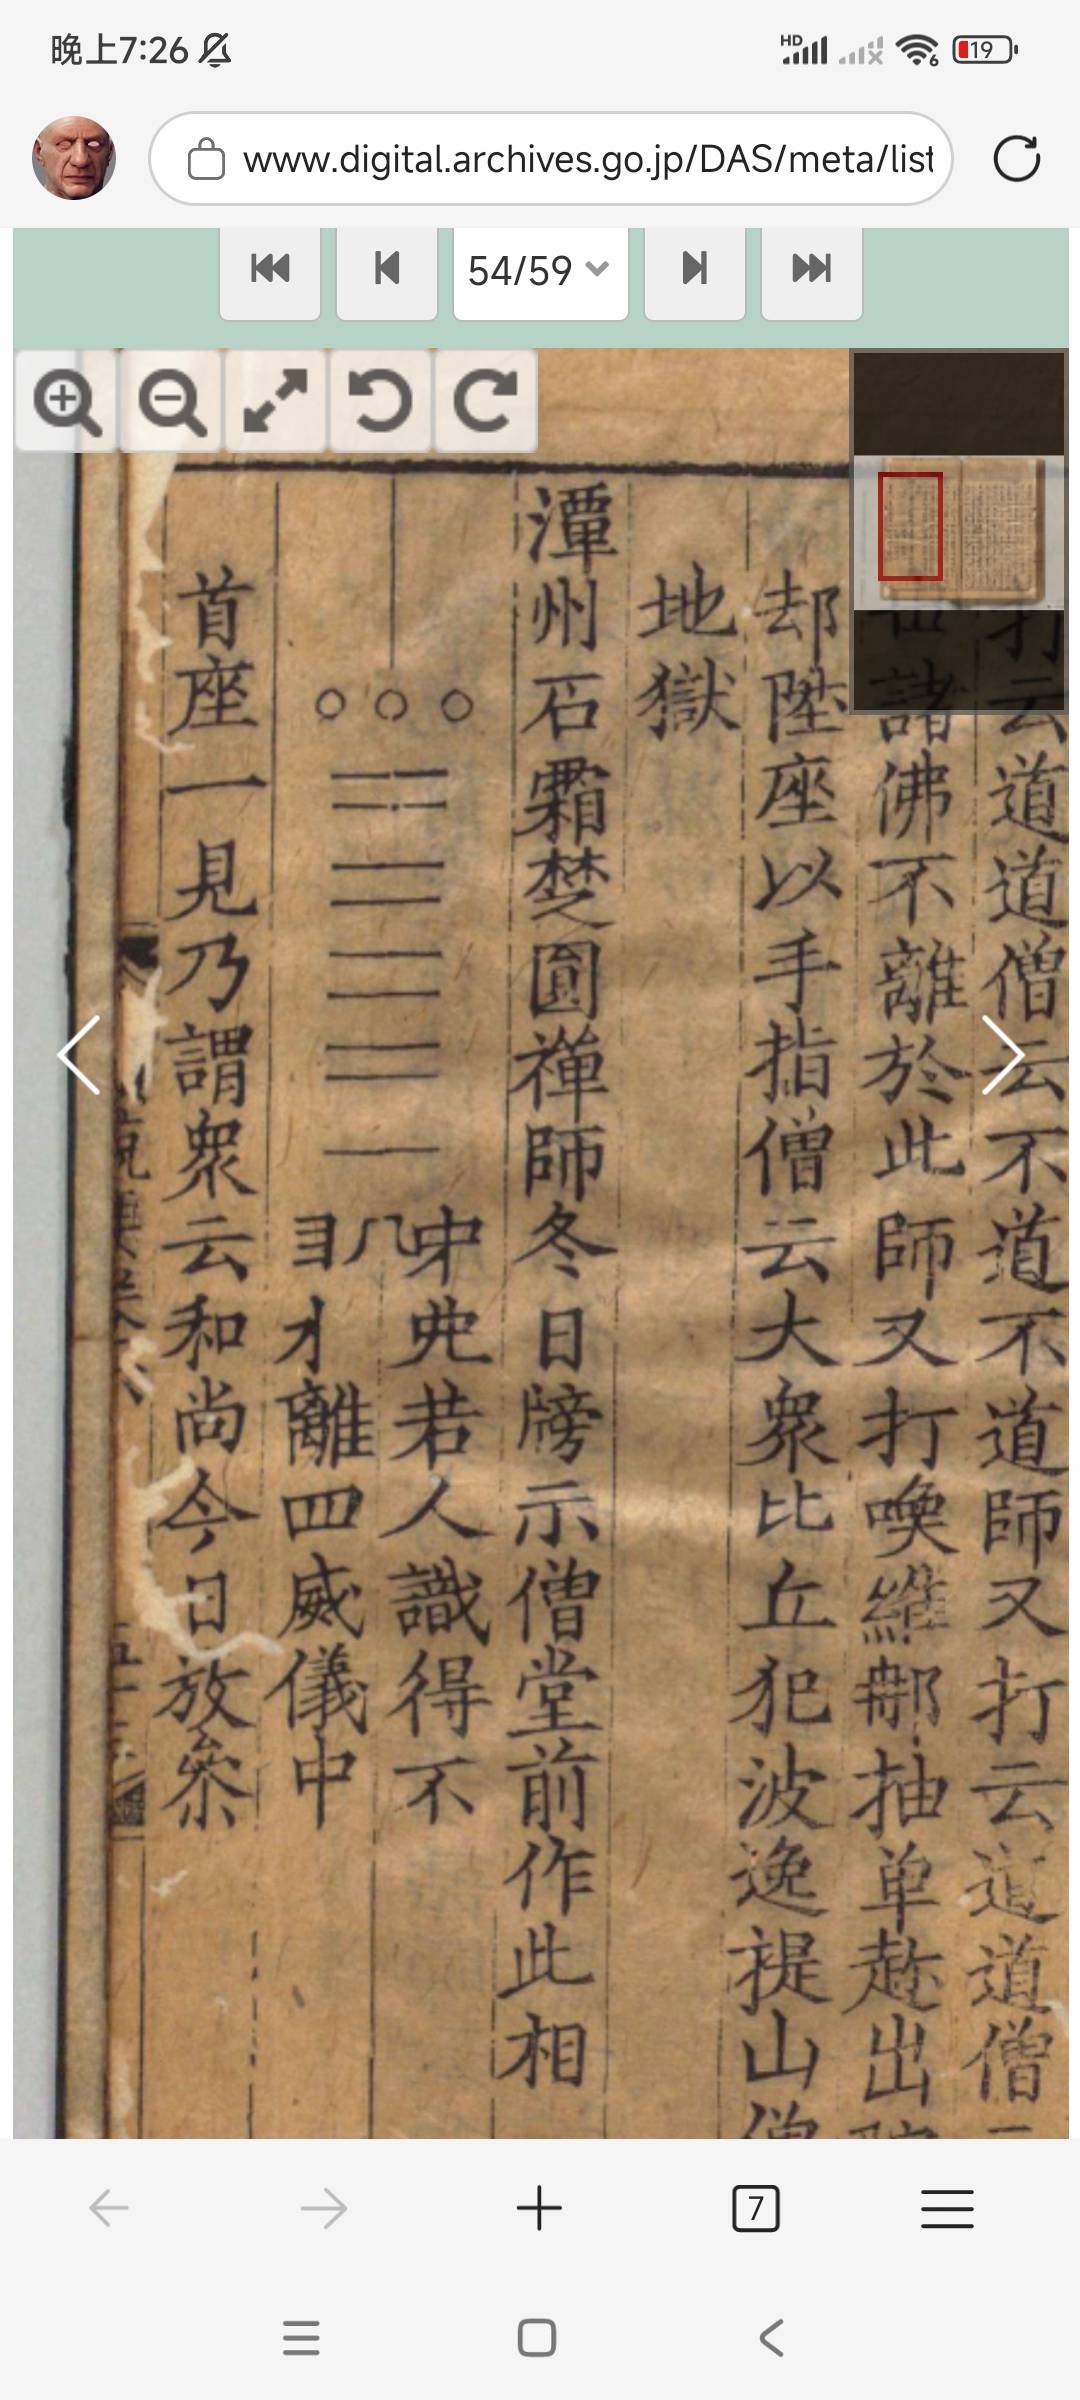 晚上7:26
HD
6
19
www.digital.archives.go.jp/DAS/meta/list
54/59
打云道道僧云不道不道師又打云道道僧云
諸佛不離於此師又打喚維那抽单趂出院
却陞座以手指僧云大衆比丘犯波逸提山僧
地獄
潭州石霜楚圎禪師冬日牓示僧堂前作此相
○○○
兠若人識得不
才離四威儀中
首座一見乃謂衆云和尚今日放叅
7